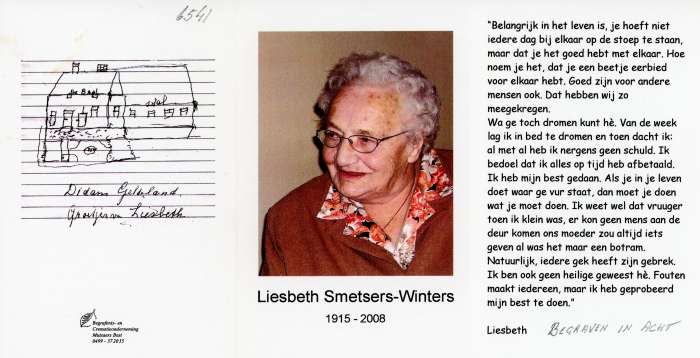 6541
De Baal
stal
Didam Gelderland
Groetjes van Liesbeth
Begrafenis- en
Crematieonderneming
Mutsaers Best
0499 - 37 20 15
Liesbeth Smetsers-Winters
1915 - 2008
"Belangrijk in het leven is, je hoeft niet
iedere dag bij elkaar op de stoep te staan,
maar dat je het goed hebt met elkaar. Hoe
noem je het, dat je een beetje eerbied
voor elkaar hebt. Goed zijn voor andere
mensen ook. Dat hebben wij zo
meegekregen.
Wa ge toch dromen kunt hè. Van de week
lag ik in bed te dromen en toen dacht ik:
al met al heb ik nergens geen schuld. Ik
bedoel dat ik alles op tijd heb afbetaald.
Ik heb mijn best gedaan. Als je in je leven
doet waar ge vur staat, dan moet je doen
wat je moet doen. Ik weet wel dat vruuger
toen ik klein was, er kon geen mens aan de
deur komen ons moeder zou altijd iets
geven al was het maar een botram.
Natuurlijk, iedere gek heeft zijn gebrek.
Ik ben ook geen heilige geweest hè. Fouten
maakt iedereen, maar ik heb geprobeerd
mijn best te doen."
Liesbeth BEGRAVEN IN ACHT